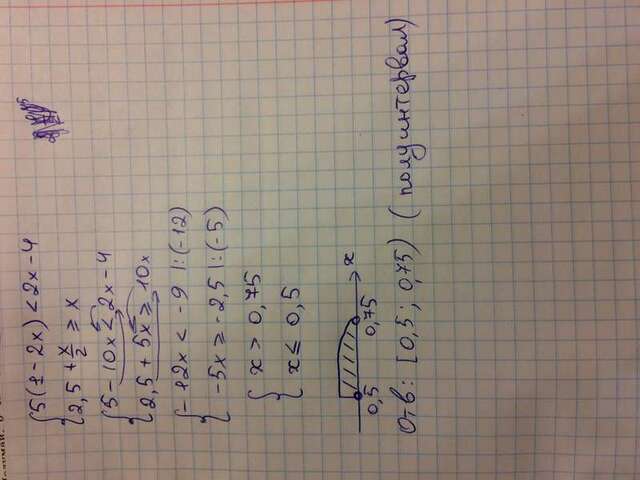 5(1-2x)<2x-4
2,5+x/2≥x
5-10x<2x-4
2,5+5x≥10x
-12x<-9 |:(-12)
-5x≥-2,5 |:(-5)
x>0,75
x≤0,5
x
0,5 0,75
Отв: [0,5; 0,75) (полуинтервал)